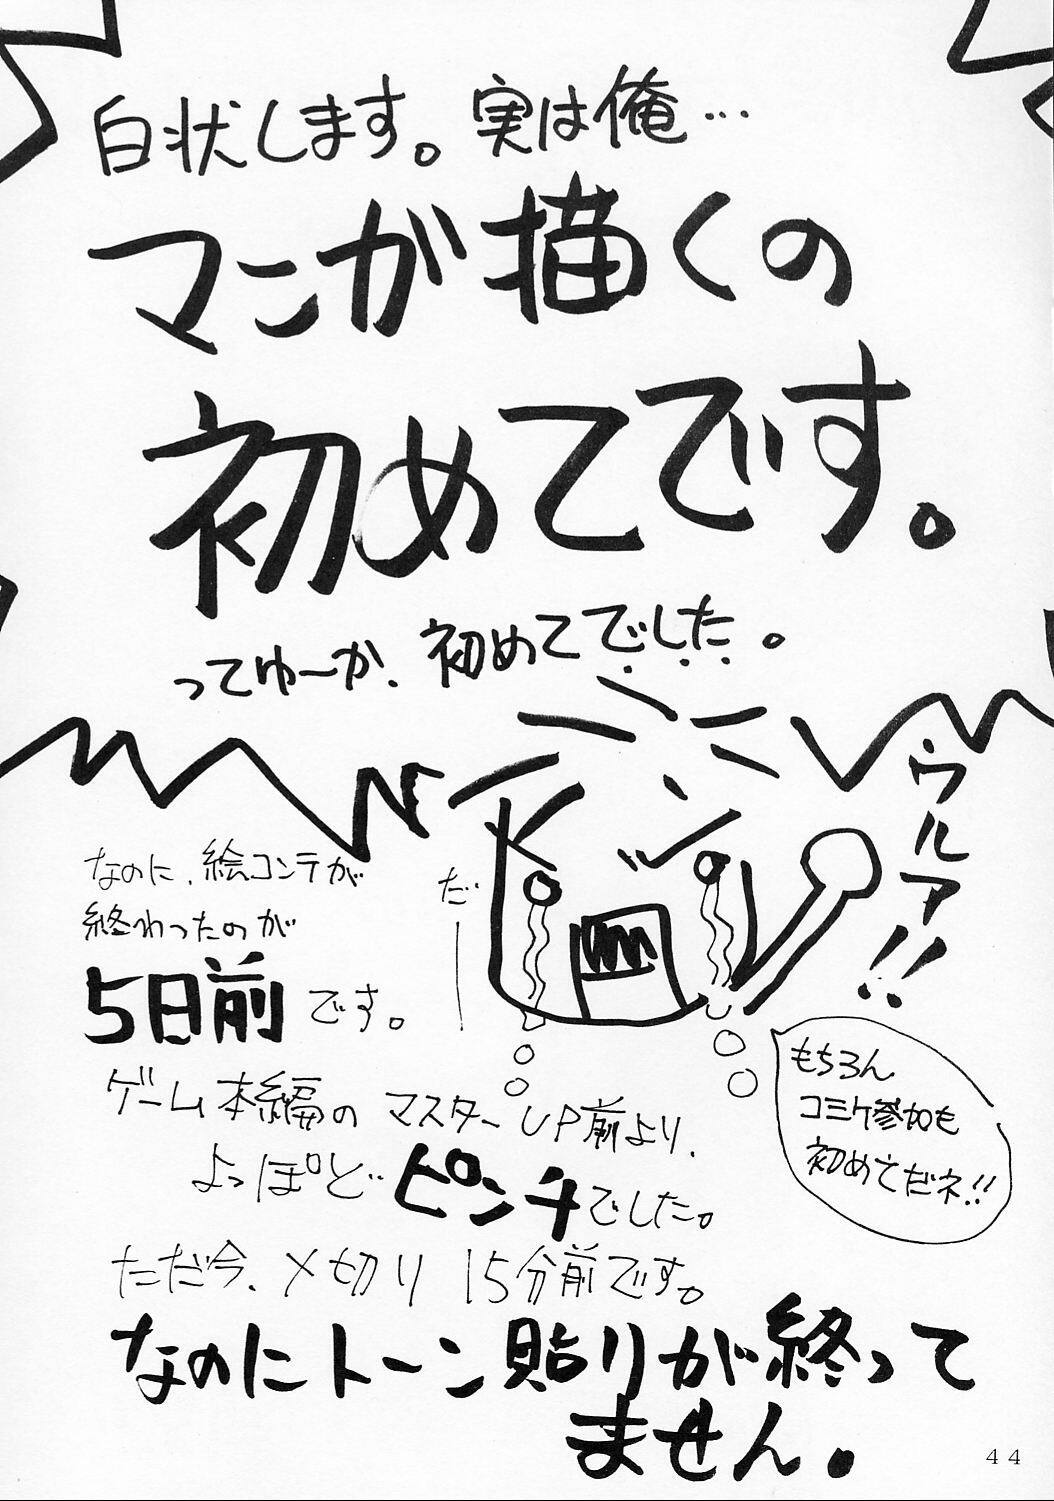 白状します。実は俺…
マンが描くの
初めてです。
ってゆーか、初めてでした。
ウルア!!
なのに、絵コンテが
終わったのが
5日前です。
だ――
もちろん
コミケ参加も
初めてだネ!!
ゲーム本編のマスターUP前より、
よっぽどピンチでした。
ただ今、〆切り15分前です。
なのにトーン貼りが終って
ません。
44